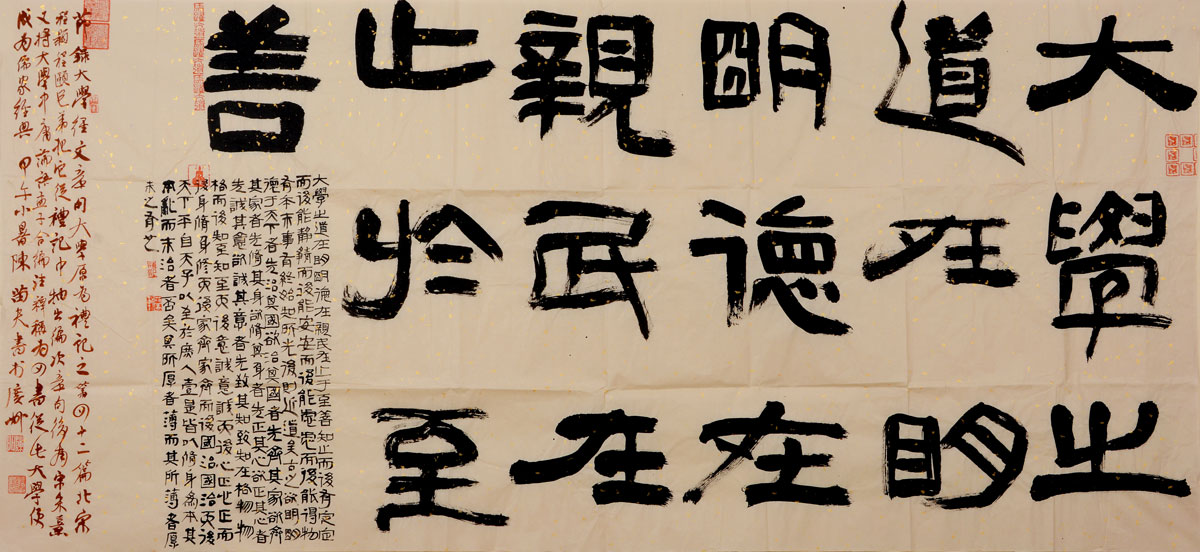 大學之
道在明
明德在
親民在
止於至
善
大學之道在明明德在親民在止于至善知止而後有定定
而後能靜靜而後能安安而後能慮慮而後能得物
有本末事有終始知所先後則近道矣古之欲明明
德于天下者先治其國欲治其國者先齊其家欲齊
其家者先脩其身欲脩其身者先正其心欲正其心者
先誠其意欲誠其意者先致其知致知在格物物
格而後知至知至而後意誠意誠而後心正心正而後
身脩身脩而後家齊家齊而後國治國治而後
天下平自天子以至於庶人壹是皆以脩身為本其
本亂而末治者否矣其所厚者薄而其所薄者厚
未之有也
節錄大學經文章句大學原為禮記之第四十二篇北宋
程顥程頤兄弟把它從禮記中抽出編次章句後為宋朱熹
又將大學中庸論語孟子合編注釋稱為四書從此大學便
成為儒家經典 甲午小暑陳夫書於廣州